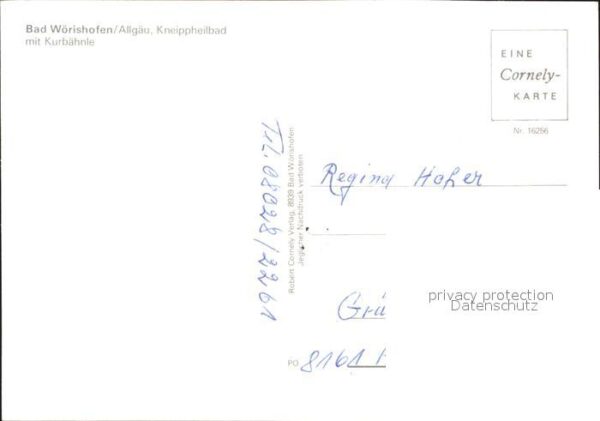 Bad Wörishofen/Allgäu, Kneippheilbad
mit Kurbähnle
EINE
Cornely-
KARTE
Nr. 16266
Tel. 08028/2261
Robert Cornely Verlag, 8939 Bad Wörishofen
Jeglicher Nachdruck verboten
Regina Hofer
privacy protection
Datenschutz
Grä
PO
8161